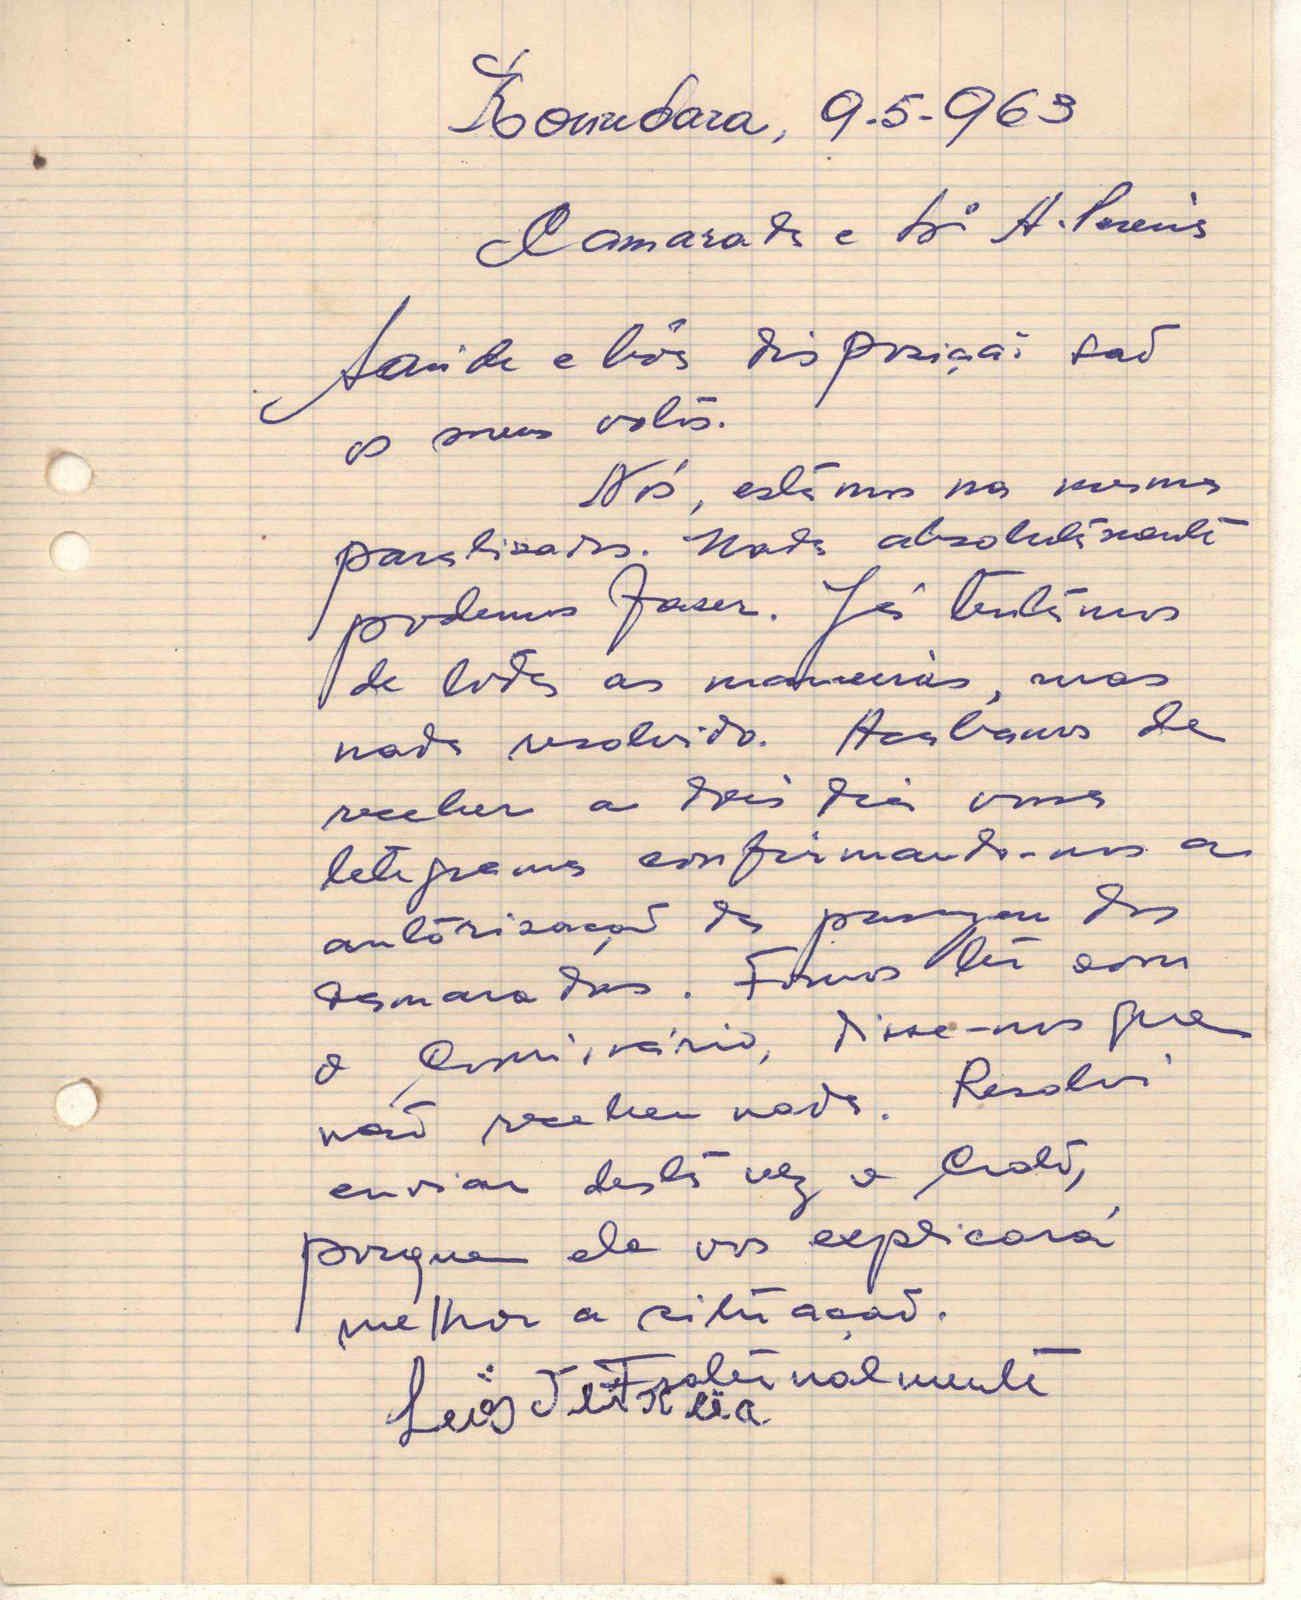 Koundara, 9-5-963
Camarada e A. Pereira
Saúde e bôa disposição são
os meus votos.
Nós, estâmos na mesma
paralizados. Nada absolutamente
podemos fazer. Já tentâmos
de todas as maneiras, mas
nada resolvido. Acabamos de
receber a dois dias vosso
telegrama confirmando-nos a
autorização da passagem dos
camaradas. Fomos têr com
o Comissário, disse-nos que
não recebeu nada. Resolvi
enviar desta vez o
porque ele vos explicará
melhor a situação.
Fraternalmente